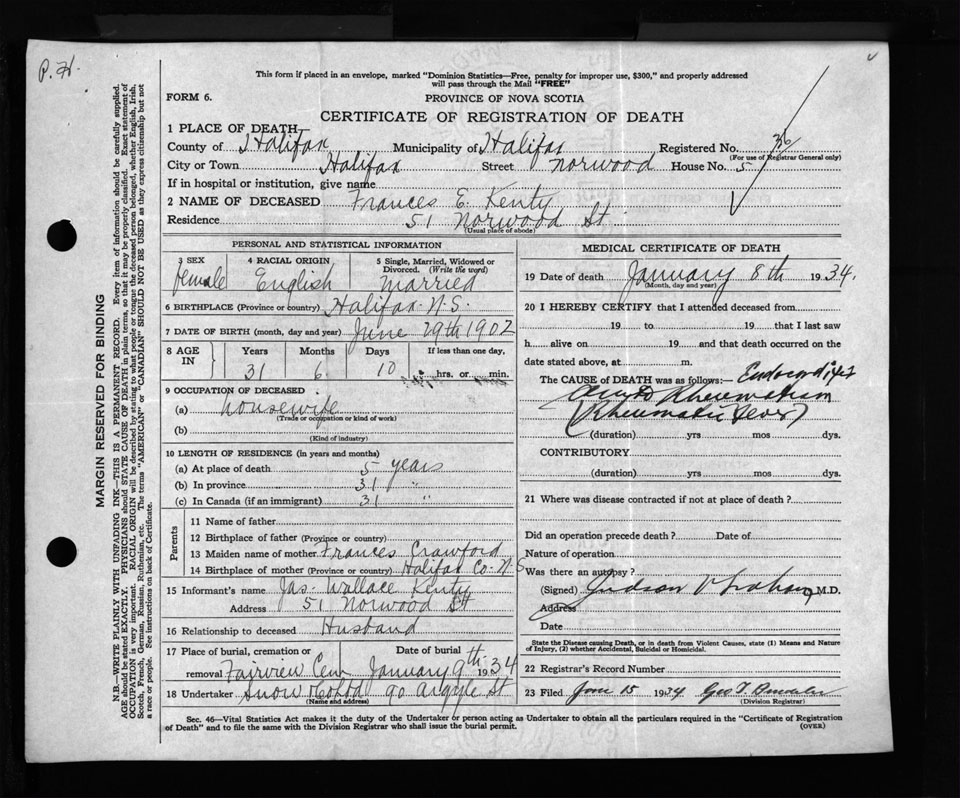 P.H.
This form if placed in an envelope, marked "Dominion Statistics—Free, penalty for improper use, $300," and properly addressed
will pass through the Mail "FREE"
FORM 6.
PROVINCE OF NOVA SCOTIA
CERTIFICATE OF REGISTRATION OF DEATH
1 PLACE OF DEATH
County of Halifax Municipality of Halifax Registered No. 36
(For use of Registrar General only)
City or Town Halifax Street Norwood House No. 5
If in hospital or institution, give name
2 NAME OF DECEASED Frances E. Kenty
Residence 51 Norwood St
(Usual place of abode)
PERSONAL AND STATISTICAL INFORMATION
3 SEX 4 RACIAL ORIGIN 5 Single, Married, Widowed or Divorced. (Write the word)
female English Married
6 BIRTHPLACE (Province or country) Halifax N.S.
7 DATE OF BIRTH (month, day and year) June 29th 1902
8 AGE IN Years Months Days If less than one day,
31 6 10 hrs. or min.
9 OCCUPATION OF DECEASED
(a) housewife
(Trade or occupation or kind of work)
(b)
(Kind of industry)
10 LENGTH OF RESIDENCE (in years and months)
(a) At place of death 5 years
(b) In province 31 "
(c) In Canada (if an immigrant) 31 "
Parents
11 Name of father
12 Birthplace of father (Province or country)
13 Maiden name of mother Frances Crawford
14 Birthplace of mother (Province or country) Halifax Co. N.S
15 Informant's name Jas. Wallace Kenty
Address 51 Norwood St
16 Relationship to deceased Husband
17 Place of burial, cremation or removal Date of burial
Fairview Cem January 9th 1934
18 Undertaker Snow & Co Ltd 90 Argyle St
(Name and address)
MEDICAL CERTIFICATE OF DEATH
19 Date of death January 8th 1934.
(Month, day and year)
20 I HEREBY CERTIFY that I attended deceased from
19 to 19 that I last saw
h alive on 19 and that death occurred on the
date stated above, at m.
The CAUSE of DEATH was as follows:— Endocarditis
Acute Rheumatism
(Rheumatic Fever)
(duration) yrs mos dys.
CONTRIBUTORY
(duration) yrs mos dys.
21 Where was disease contracted if not at place of death?
Did an operation precede death? Date of
Nature of operation
Was there an autopsy?
(Signed) Judson V Graham M.D.
Address
Date
State the Disease causing Death, or in death from Violent Causes, state (1) Means and Nature
of Injury, (2) whether Accidental, Suicidal or Homicidal.
22 Registrar's Record Number
23 Filed 15 1934 Geo T.
(Division Registrar)
Sec. 46—Vital Statistics Act makes it the duty of the Undertaker or person acting as Undertaker to obtain all the particulars required in the "Certificate of Registration
of Death" and to file the same with the Division Registrar who shall issue the burial permit. (OVER)
MARGIN RESERVED FOR BINDING
N.B.—WRITE PLAINLY WITH UNFADING INK—THIS IS A PERMANENT RECORD. Every item of information should be carefully supplied.
AGE should be stated EXACTLY. PHYSICIANS should STATE CAUSE OF DEATH in plain terms, so that it may be properly classified. Exact statement of
OCCUPATION is very important. RACIAL ORIGIN will be described by stating to what people or tongue the deceased person belonged, whether English, Irish,
Scotch, French, German, Russian, Ruthenian, etc. The terms "AMERICAN" or "CANADIAN" SHOULD NOT BE USED as they express citizenship but not
a race or people. See instructions on back of Certificate.